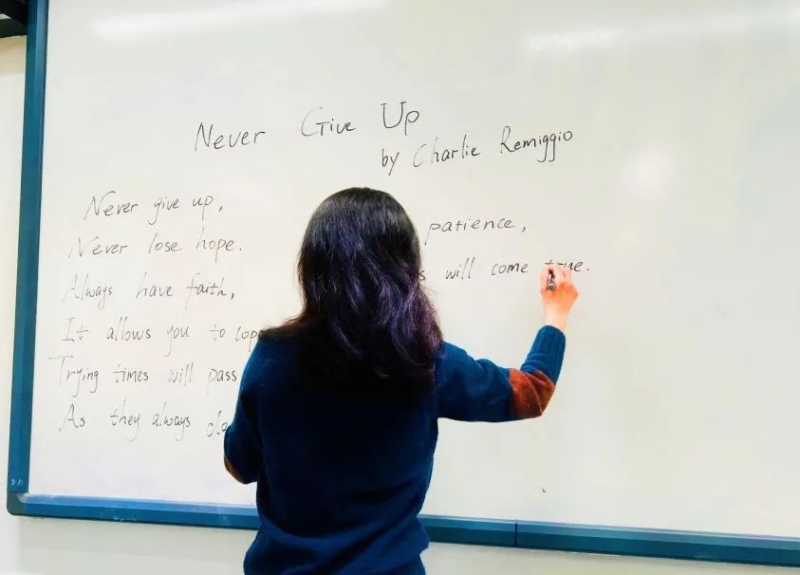 Never Give Up
by Charlie Remiggio
Never give up,
Never lose hope.
Always have faith,
It allows you to cope
Trying times will pass
As they always do
patience,
will come true.